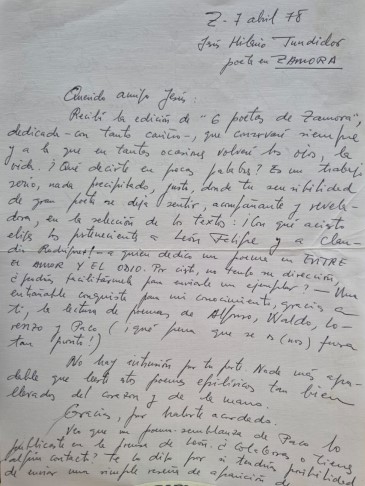 Z - 7 abril 78
Jesús Hilario Tundidor
poeta en ZAMORA
Querido amigo Jesús:
Recibí la edición de "6 poetas de Zamora",
dedicada - con tanto cariño -, que conservaré siempre
y a la que en tantas ocasiones volveré los ojos, la
vida. ¿Qué decirte en pocas palabras? Es un trabajo
serio, nada precipitado, justo, donde tu sensibilidad
de gran poeta se deja sentir, acompañante y revela-
dora, en la selección de los textos: ¡Con qué acierto
eliges los pertenecientes a León Felipe y a Clau-
dio Rodríguez! - a quien dedico un poema en ENTRE
EL AMOR Y EL ODIO. Por cierto, no tengo su dirección,
¿podrías facilitármela para enviarle un ejemplar? - Una
entrañable conquista para mi conocimiento, gracias a
ti, la lectura de poemas de Alfonso, Waldo, Lo-
renzo y Paco (¡qué pena que se os (nos) fuera
tan pronto!)
No hay intrusión por tu parte. Nada más agra-
dable que leer estos poemas tan bien
llevados del corazón y de la mano.
Gracias, por haberte acordado.
Veo que mi poema-semblanza de Paco lo
publicaste en la prensa de León. ¿Colaboras o tienes
algún contacto? Te lo digo por si tendrías posibilidad
de enviar una simple reseña de aparición de